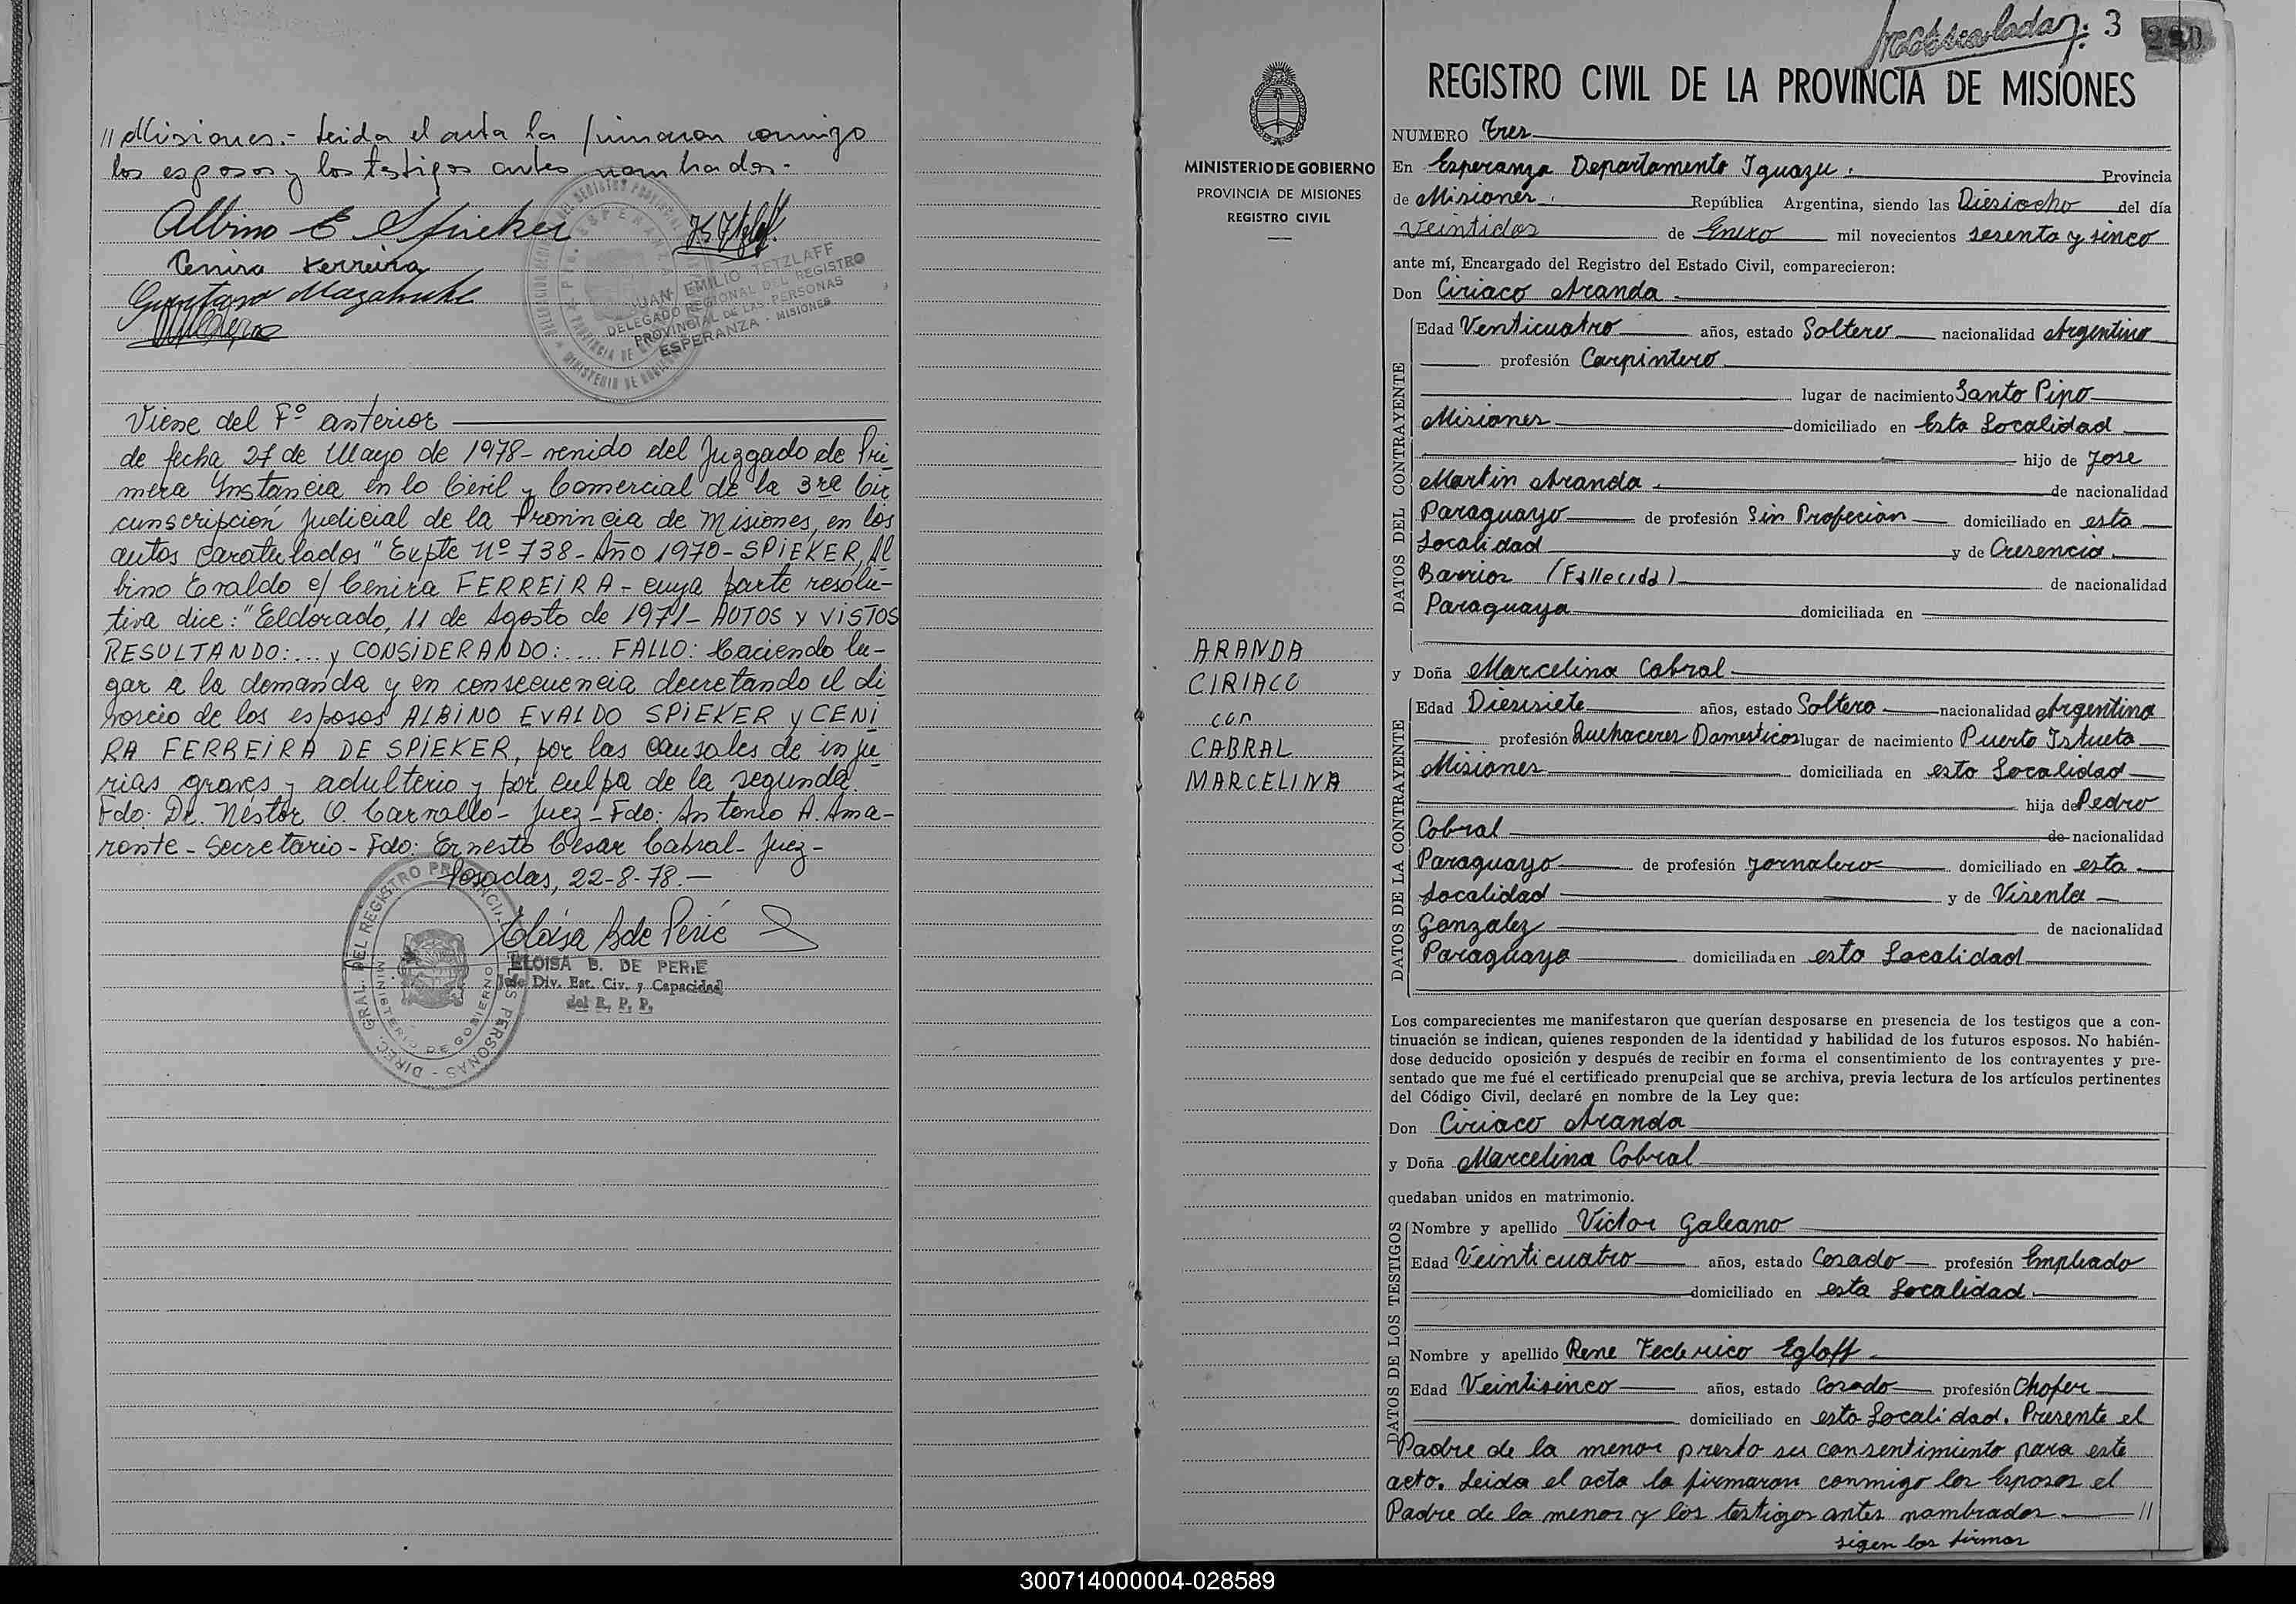 // Misiones.- Leida el acta la firmaron conmigo
los esposos y los testigos antes nombrados.-
Albino E Spieker
Cenira Ferreira
JUAN EMILIO TETZLAFF
DELEGADO REGIONAL DEL REGISTRO
PROVINCIAL DE LAS PERSONAS
ESPERANZA - MISIONES
Viene del Fº anterior
de fecha 27 de Mayo de 1978- venido del Juzgado de Pri-
mera Instancia en lo Civil y Comercial de la 3ra Cir
cunscripción Judicial de la Provincia de Misiones, en los
autos caratulados "Expte Nº 738- Año 1970- SPIEKER, Al
bino Evaldo c/ Cenira FERREIRA- cuya parte resolu-
tiva dice: "Eldorado, 11 de Agosto de 1971- AUTOS Y VISTOS
RESULTANDO:... y CONSIDERANDO:.... FALLO: Haciendo lu-
gar a la demanda y en consecuencia decretando el di
vorcio de los esposos ALBINO EVALDO SPIEKER y CENI
RA FERREIRA DE SPIEKER, por las causales de inju-
rias graves y adulterio y por culpa de la segunda.
Fdo: Dr. Néstor O. Carvallo- Juez- Fdo: Antonio A. Ama-
rante- Secretario- Fdo: Ernesto Cesar Cabral- Juez-
Posadas, 22-8-78.-
Eloisa B de Perié
ELOISA B. DE PERIE
Jefe Div. Est. Civ. y Capacidad
del R. P. P.
DIREC. GRAL. DEL REGISTRO PROVINCIAL DE LAS PERSONAS
MINISTERIO DE GOBIERNO
MINISTERIO DE GOBIERNO
PROVINCIA DE MISIONES
REGISTRO CIVIL
ARANDA
CIRIACO
con
CABRAL
MARCELINA
3
REGISTRO CIVIL DE LA PROVINCIA DE MISIONES
NUMERO Tres
En Esperanza Departamento Iguazu. Provincia
de Misiones. República Argentina, siendo las Diesiocho del día
veintidos de Enero mil novecientos sesenta y sinco
ante mí, Encargado del Registro del Estado Civil, comparecieron:
Don Ciriaco Aranda
DATOS DEL CONTRAYENTE
Edad Venticuatro años, estado Soltero nacionalidad Argentino
profesión Carpintero
lugar de nacimiento Santo Pipo
Misiones domiciliado en Esta Localidad
hijo de Jose
Martin Aranda. de nacionalidad
Paraguayo de profesión Sin Profecion domiciliado en esta
Localidad y de Cresencia
Barrios (Fallecida) de nacionalidad
Paraguaya domiciliada en
y Doña Marcelina Cabral
DATOS DE LA CONTRAYENTE
Edad Diesisiete años, estado Soltera nacionalidad Argentina
profesión Quehaceres Domesticos lugar de nacimiento Puerto Istueta
Misiones domiciliada en esta Localidad
hija de Pedro
Cabral de nacionalidad
Paraguayo de profesión Jornalero domiciliado en esta
Localidad y de Visenta
Gonzalez de nacionalidad
Paraguaya domiciliada en esta Localidad
Los comparecientes me manifestaron que querían desposarse en presencia de los testigos que a con-
tinuación se indican, quienes responden de la identidad y habilidad de los futuros esposos. No habién-
dose deducido oposición y después de recibir en forma el consentimiento de los contrayentes y pre-
sentado que me fué el certificado prenupcial que se archiva, previa lectura de los artículos pertinentes
del Código Civil, declaré en nombre de la Ley que:
Don Ciriaco Aranda
y Doña Marcelina Cabral
quedaban unidos en matrimonio.
DATOS DE LOS TESTIGOS
Nombre y apellido Victor Galeano
Edad Veinticuatro años, estado Casado profesión Empleado
domiciliado en esta Localidad
Nombre y apellido Rene Federico Egloff
Edad Veintisinco años, estado Casado profesión Chofer
domiciliado en esta Localidad. Presente el
Padre de la menor presto su consentimiento para este
acto. Leida el acta la firmaron conmigo los Esposos el
Padre de la menor y los testigos antes nombrados. //
sigen las firmas
300714000004-028589